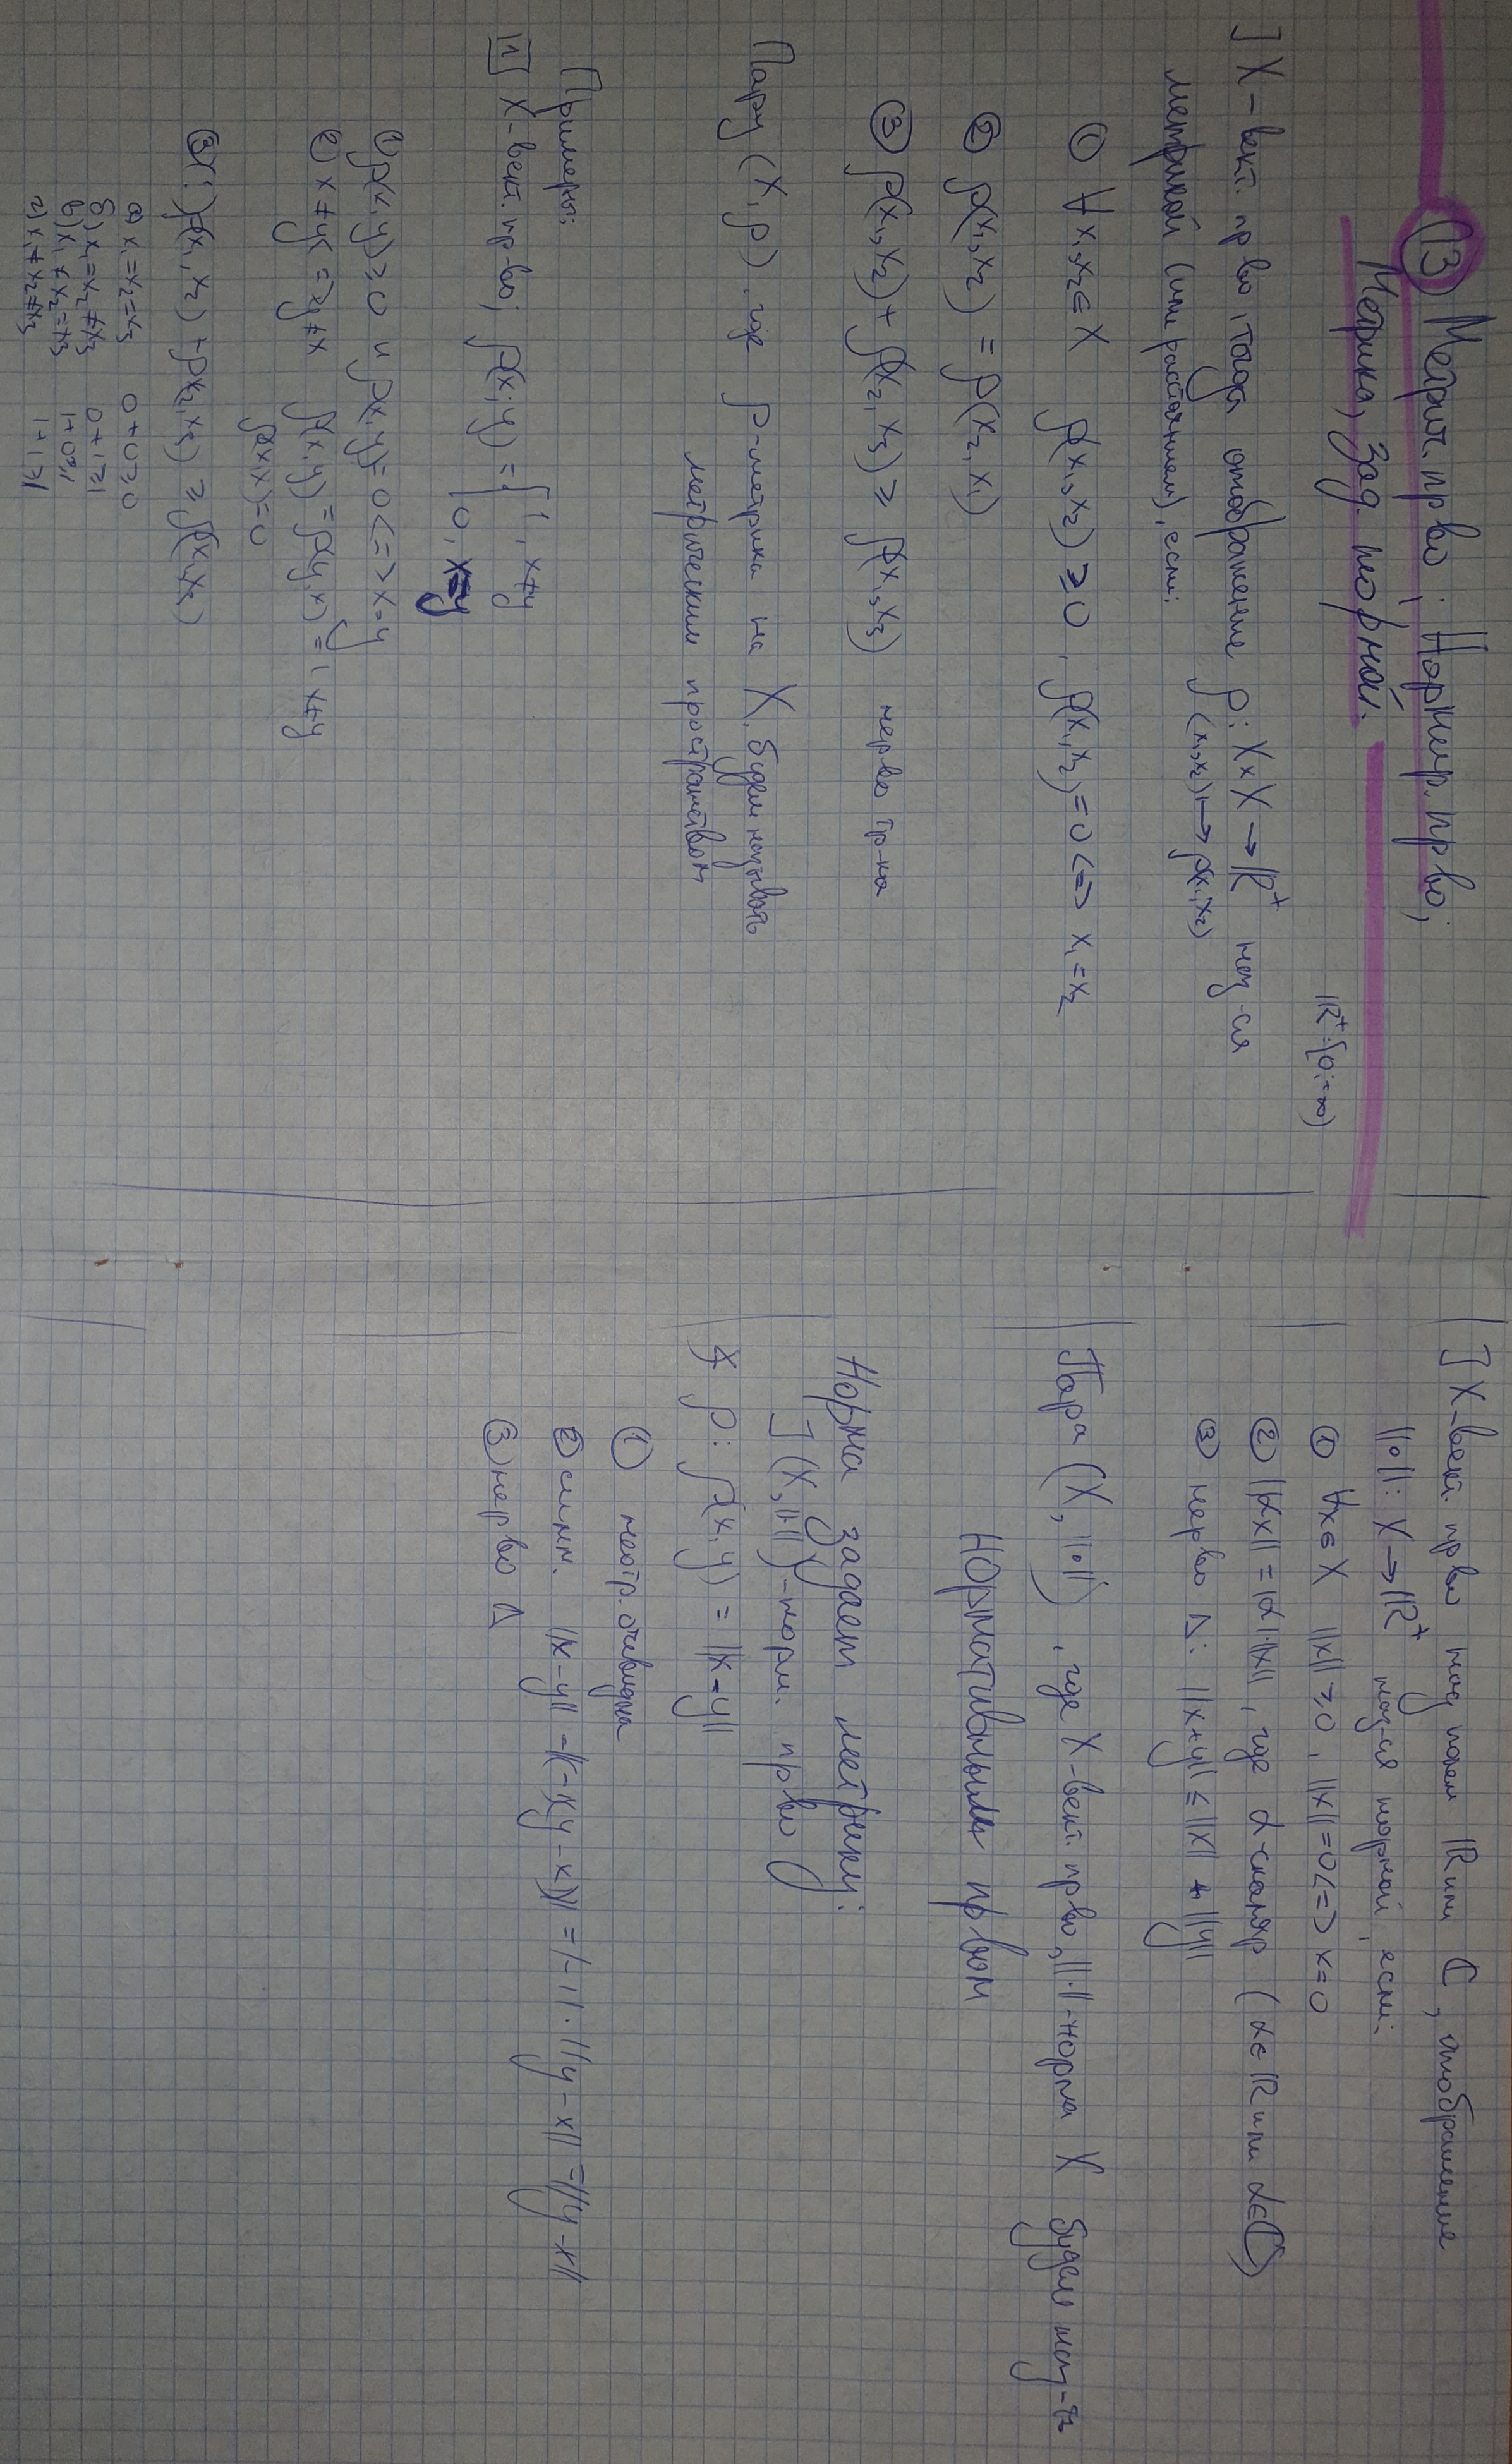 13 Метрич. пр-во; Нормир. пр-во;
Метрика, зад. нормой.
R⁺=[0;+∞)
] X - вект. пр-во, тогда отображение ρ: X×X → R⁺ наз-ся
метрикой (или расстоянием), если: (x₁,x₂) ↦ ρ(x₁,x₂)
① ∀ x₁,x₂ ∈ X ρ(x₁,x₂) ≥ 0, ρ(x₁,x₂) = 0 <=> x₁=x₂
② ρ(x₁,x₂) = ρ(x₂,x₁)
③ ρ(x₁,x₂) + ρ(x₂,x₃) ≥ ρ(x₁,x₃) нер-во тр-ка
Пару (X,ρ), где ρ-метрика на X, будем называть
метрическим пространством
Примеры:
1 X-вект. пр-во; ρ(x;y) = { 1, x≠y
0, x=y
① ρ(x,y) ≥ 0 и ρ(x,y) = 0 <=> x=y
② x≠y <=> y≠x ρ(x,y) = ρ(y,x) = 1 x≠y
ρ(x,x)=0
③ ρ(x₁,x₂) + ρ(x₂,x₃) ≥ ρ(x₁,x₃)
а) x₁=x₂=x₃ 0+0≥0
б) x₁=x₂≠x₃ 0+1≥1
в) x₁≠x₂=x₃ 1+0≥1
г) x₁≠x₂≠x₃ 1+1≥1
] X-вект. пр-во над полем R или C, отображение
||∘||: X → R⁺ наз-ся нормой, если:
① ∀x∈X ||x|| ≥ 0, ||x||=0 <=> x=0
② ||αx|| = |α|·||x||, где α-скаляр (α∈R или α∈C)
③ нер-во Δ: ||x+y|| ≤ ||x|| + ||y||
Пара (X, ||∘||), где X-вект. пр-во, ||·||-норма X будем наз-ть
нормативным пр-вом
Норма задает метрику:
] (X,||·||)-норм. пр-во
ρ: ρ(x,y) = ||x-y||
① неотр. очевидна
② симм. ||x-y|| = ||(-1)(y-x)|| = |-1|·||y-x|| = ||y-x||
③ нер-во Δ